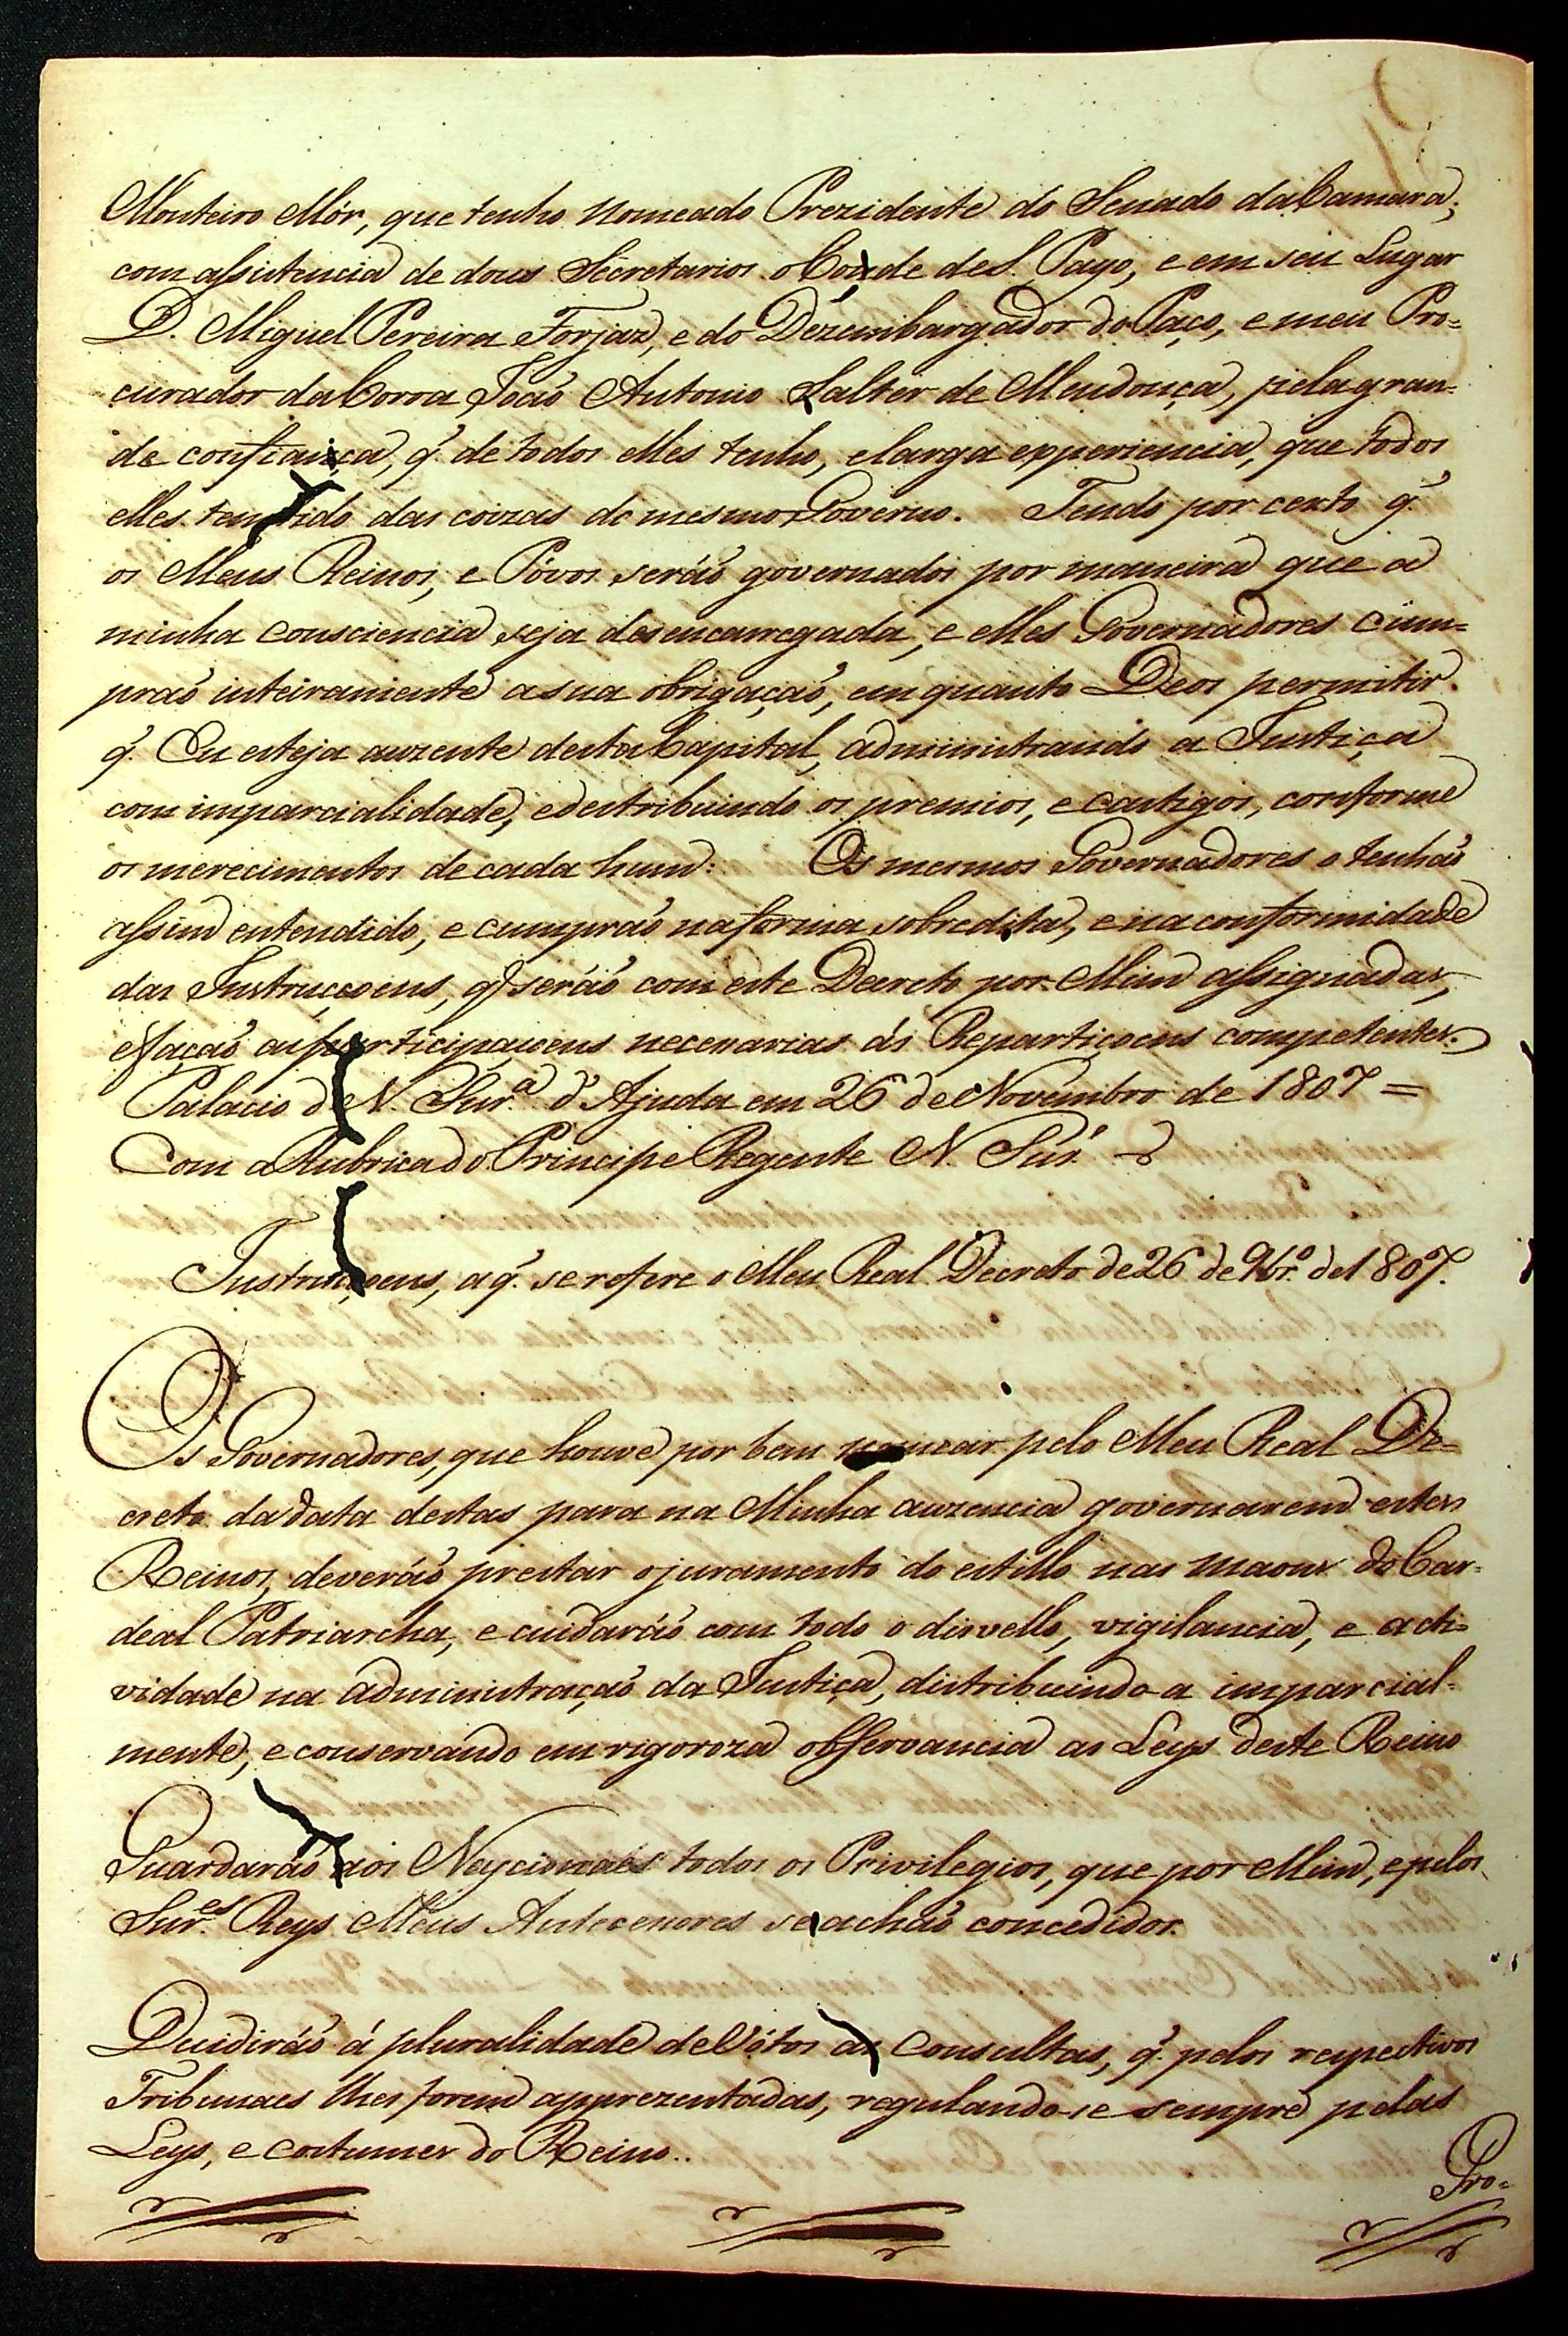 Monteiro Mór, que tenho nomeado Prezidente do Senado da Camara,
com assistencia de dous Secretarios o Conde de S. Payo, e em seu Lugar
D. Miguel Pereira Forjaz, e do Dezembargador do Paço, e meu Pro=
curador da Coroa João Antonio Salter de Mendonça, pela gran=
de confiança, q̃. de todos elles tenho, e larga experiencia, que todos
elles tem tido das coizas do mesmo Governo. Tendo por certo q̃.
os Meus Reinos, e Póvos serão governados por maneira que a
minha consciencia seja desencarregada, e elles Governadores cum=
prão inteiramente a sua obrigação, em quanto Deos permitir.
q̃. Eu esteja auzente desta Capital, administrando a Justiça
com imparcialidade, e destribuindo os premios, e castigos, conforme
os merecimentos de cada hum: Os mesmos Governadores o tenhão
assim entendido, e cumprão na forma sobredita, e na conformidade
das Instrucçoens, q̃ serão com este Decreto por Mim assignadas,
e fação as participaçoens necessarias ás Repartiçoens competentes.
Palacio de N. Snr.ª d'Ajuda em 26 de Novembro de 1807 =
Com a Rubrica do Principe Regente N. Snr.
Instrucçoens, a q̃. se refere o Meu Real Decreto de 26 de 9br.º de 1807.
Os Governadores, que houve por bem nomear pelo Meu Real De=
creto da data destas para na Minha auzencia governarem estes
Reinos, deverão prestar o juramento do estillo nas maons do Car=
deal Patriarcha, e cuidarão com todo o disvello, vigilancia, e acti=
vidade na administração da Justiça, distribuindo-a imparcial=
mente, e conservando em rigoroza observancia as Leys deste Reino
Guardarão aos Nacionaes todos os Privilegios, que por Mim, e pelos
Snr.es Reys Meus Antecessores se achão concedidos.
Decidirão á pluralidade de Vótos as Consultas, q̃. pelos respectivos
Tribunaes lhes forem apprezentadas, regulando-se sempre pelas
Leys, e costumes do Reino..
Pro=